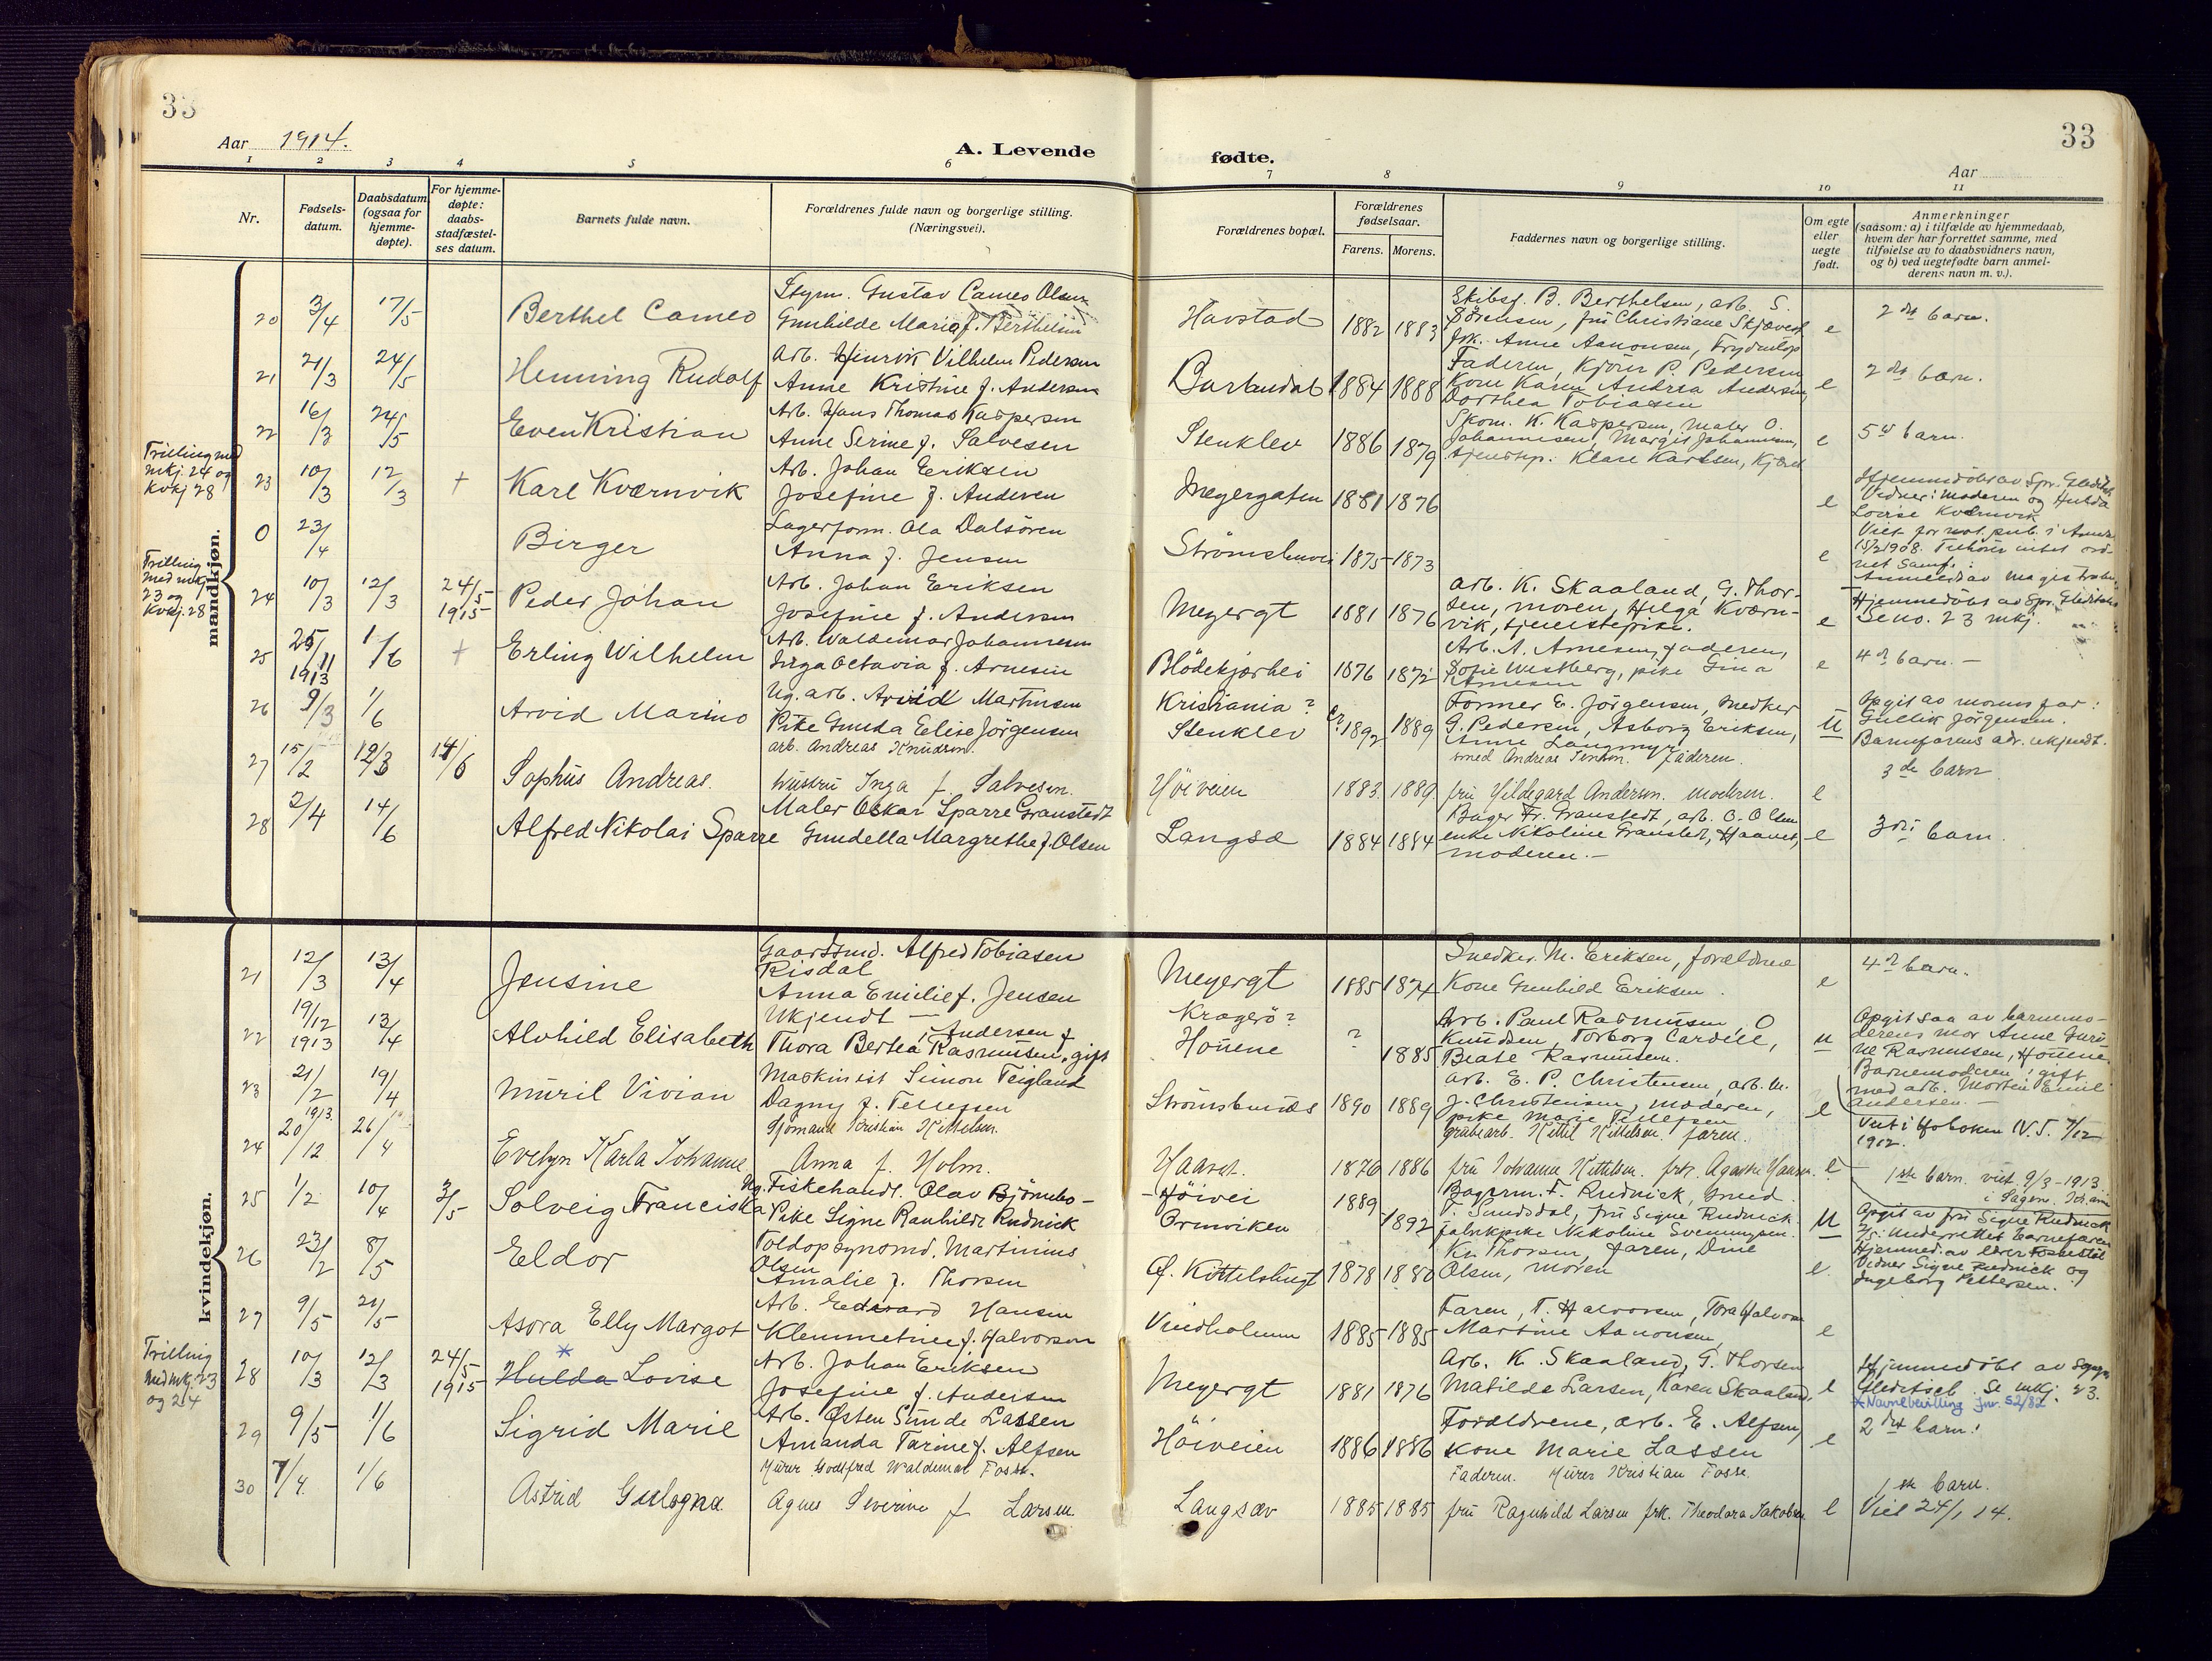 33
33
Aar 1914.
A. Levende
fødte.
Aar
1 2 3 4 5 6 7 8 9 10 11
Nr.
Fødsels-
datum.
Daabsdatum
(ogsaa for
hjemme-
døpte).
For hjemme-
døpte:
daabs-
stadfæstel-
ses datum.
Barnets fulde navn.
Forældrenes fulde navn og borgerlige stilling.
(Næringsvei).
Forældrenes bopæl.
Forældrenes
fødselsaar.
Farens. Morens.
Faddernes navn og borgerlige stilling.
Om egte
eller
uegte
født.
Anmerkninger
(saasom: a) i tilfælde av hjemmedaab,
hvem der har forrettet samme, med
tilføielse av to daabsvidners navn,
og b) ved uegtefødte barn anmel-
derens navn m. v.).
mandkjøn.
20 3/4 17/5 Berthel Cameo
Styrm. Gustav Cameo Olsen
Gunhilde Maria f. Berthelsen
Havstad 1882 1883
Skibsf. B. Berthelsen, arb. S.
Sörensen, fru Christiane Skjævest
Frk. Anne Aanonsen, Frydenlop
e 2det barn.
21 21/3 24/5 Henning Rudolf
Arb. Hinrik Vilhelm Pedersen
Anne Kristine f. Andersen
Barbudal 1884 1888
Faderen, Kjörer P. Pedersen
Kone Karen Andrea Andersen,
Dorthea Tobiasen
e 2det barn.
22 16/3 24/5 Even Kristian
Arb. Hans Thomas Kaspersen
Anne Serine f. Salvesen
Stenklev 1886 1879
Skom. K. Kaspersen, Maler O.
Johannesen, Margit Johannesen,
tjenstep. Klara Karlsen, Kjærel
e 5te barn.
Trilling med
mkj. 24 og
kvkj 28
23 10/3 12/3 + Karl Kværnvik
Arb. Johan Eriksen
Josefine f. Andersen
Meyergaten 1881 1876 e
Hjemmedöbt av Spr. Gleditsch
Vidner: Moderen og Hulda
Lovise Kværnvik
0 23/4 Birger
Lagerform. Ola Dalsören
Anna f. Jensen
Strömsbuvei 1875 1873 e
Viet for not. publ. i Arendal
15/2 1908. Tilhörer intet ord-
net Samf.
Anmeldt av magistraten
Trilling
med mkj
23 og
kvkj. 28
24 10/3 12/3 24/5 1915 Peder Johan
Arb. Johan Eriksen
Josefine f. Andersen
Meyergt 1881 1876
Arb. K. Skaaland, G. Thor-
sen, moren, Helga Kværn-
vik, tjenestepike.
e Hjemmedöbt av Spr. Gleditsch
Se no. 23 mkj.
25 25/11 1913 1/6 + Erling Wilhelm
Arb. Waldemar Johannesen
Inga Octavia f. Arnesen
Blödekjærhei 1876 1872
Arb. A. Arnesen, faderen,
Sofie Westberg, pike Gina
Arnesen
e 4de barn. —
26 9/3 1/6 Arvid Marino
Ug. arb. Arvid Martinsen
Pike Gunda Elise Jörgensen
Kristiania?
Stenklev 1892 1889
Former E. Jörgensen, Snedker
G. Pedersen, Asborg Eriksen,
Anne Langmyr
U Opgit av morens far:
Gullik Jörgensen.
Barnefarens adr. ukjendt.
27 15/2 12/3 14/6 Sophus Andreas.
arb. Andreas Knudsen.
hustru Inga f. Salvesen.
Höiveien 1883. 1889
smed Andreas Jensen. faderen.
fru Hildegard Andersen. moderen.
e 3de barn
28 2/4 14/6 Alfred Nikolai Sparre
Maler Oskar Sparre Granstedt
Gundella Margrethe f. Olsen
Langsæ 1884 1884
Bager Fr. Granstedt, arb. O. Olsen
enke Nikoline Granstedt, Haavet,
moderen. —
e 3die barn.
kvindekjøn.
21 12/3 13/4 Jensine
Gaardsmd. Alfred Tobiasen
Risdal
Anna Emilie f. Jensen
Meyergt 1885 1874
Snedker M. Eriksen, forældrene
Kone Gunhild Eriksen.
e 4de barn.
22 19/12 1913 13/4 Alvhild Elisabeth
Ukjendt —
Thora Bertea Rasmussen, gift Andersen f
Kragerö?
Houene ? 1885
Arb. Paul Rasmussen, O
Knudsen, Torborg Cardell,
Beate Rasmussen.
U Opgit saa av barnemo-
derens mor Anne Guru-
ne Rasmussen, Houene.
Barnemoderen: gift
med arb. Morten Emil
Andersen. —
23 21/2 19/4 Muril Vivian
Maskinist Simon Teigland
Dagny f. Tellefsen
Strömsbunæs 1890 1889
Arb. E. P. Christensen, arb. M.
J. Christensen, moderen,
pike Marie Tellefsen
e Viet i Hoboken N. J. 7/12
1912.
24 20/12 1913. 26/4 Evelyn Karla Johanne
Sjömand Kristian Kittelsen.
Anna f. Holm.
Haavet. 1876 1886
grubearb. Kittel Kittelsen. faren.
fru Johanne Kittelsen. frk. Agathe Hansen.
e 1ste barn. viet 9/3-1913.
25 1/2 10/4 3/5 Solveig Franciska
Ug. Fiskehandl. Olav Björnebo —
Pike Signe Ranhilde Rudnick
Höivei 1889
Ormviken 1892
Bagerm. F. Rudnick, Smed
T. Sundsdal, fru Signe Rudnick.
fabrikpike Nikoline Svenningsen.
U Opgit av fru Signe Rudnick
7/5. Underrettet barnefaren
Hjemmed. av lærer Fossestöl
Vidner Signe Rudnick og
Ingeborg Pettersen.
26 23/2 8/5 Eldor
Toldopsynsmd. Martinius
Olsen
Amalie f. Thorsen
Ø. Kittelsbugt 1878 1880
Kr. Thorsen, faren, Dine
Olsen, moren
e
27 9/5 21/5 Asora Elly Margot
Arb. Edevard Hansen
Klemmetine f. Halvorsen
Vindholmen 1885 1885
Faren, T. Halvorsen, Tora Halvorsen
Martine Aanonsen,
e
Trilling
med mkj. 23
og 24
28 10/3 12/3 24/5 1915 * Hulda Lovise
Arb. Johan Eriksen
Josefine f. Andersen
Meyergt 1881 1876
Arb. K. Skaaland, G. Thorsen
Matilde Larsen, Karen Skaaland.
e Hjemmedöbt av Sogn.
Gleditsch. Se mkj. 23.
* Navnebevilling jnr. 52/82
29 9/5 1/6 Sigrid Marie
Arb. Østen Sunde Lassen
Amanda Tarine f. Alfsen
Höiveien 1886 1886
Forældrene, arb. E. Alfsen,
Kone Marie Lassen
e 2det barn.
30 7/4 1/6 Astrid Gulogna
Murer Godtfred Waldemar Fosse.
Agnes Severine f Larsen.
Langsæv 1885 1885
Faderen. Murer Kristian Fosse.
fru Ragnhild Larsen frk. Theodora Jakobsen
e 1ste barn.
Viet 24/1 14.